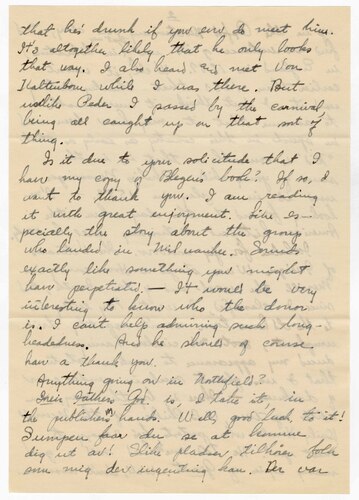 that he's drunk if you ever do meet him.
It's altogether likely that he only looks
that way. I also heard and met Von
Kaltenborn while I was there. But
unlike Peder I passed by the carnival
being all caught up on that sort of
thing.
Is it due to your solicitude that I
have my copy of Blegen's book? If so, I
want to thank you. I am reading
it with great enjoyment. Like es-
pecially the story about the group
who landed in Milwaukee. Sounds
exactly like something you might
have perpetrated — It would be very
interesting to know who the donor
is. I can't help admiring such long-
headedness. And he should of course
have a thank you.
Anything going on in Northfield?
Their Fathers' God is, I take it in
the publishers' hands. Well, good luck to it!
du se at komme
dig ut av! Slike pladser tilhører folk
som mig der ingenting kan. Der var